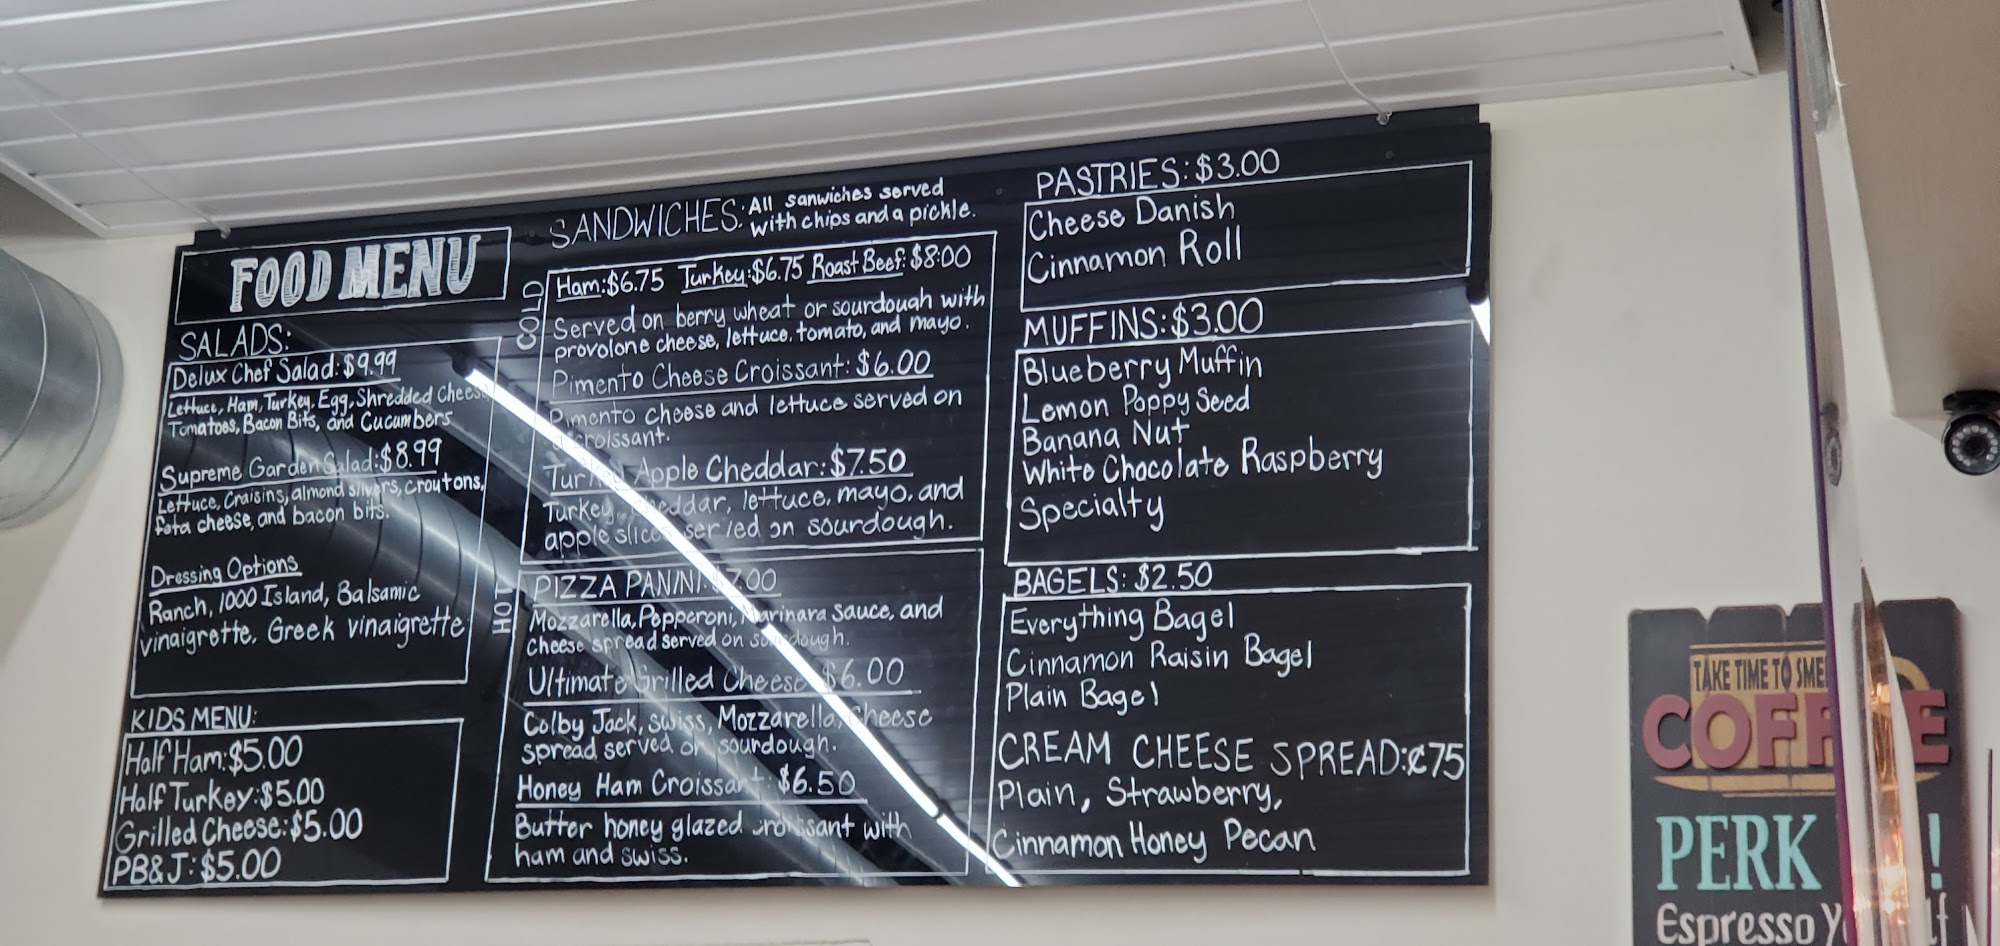 FOOD MENU
SALADS:
Delux Chef Salad:$9.99
Lettuce, Ham, Turkey, Egg, Shredded Cheese
Tomatoes, Bacon Bits, and Cucumbers
Supreme Garden Salad:$8.99
Lettuce, Craisins, almond slivers, croutons,
feta cheese, and bacon bits.
Dressing Options
Ranch, 1000 Island, Balsamic
vinaigrette, Greek vinaigrette
KIDS MENU:
Half Ham:$5.00
Half Turkey:$5.00
Grilled Cheese:$5.00
PB&J:$5.00
SANDWICHES: All sanwiches served
with chips and a pickle.
COLD
Ham:$6.75 Turkey:$6.75 Roast Beef:$8.00
Served on berry wheat or sourdough with
provolone cheese, lettuce, tomato, and mayo.
Pimento Cheese Croissant:$6.00
Pimento cheese and lettuce served on
a croissant.
Turkey Apple Cheddar:$7.50
Turkey, cheddar, lettuce, mayo, and
apple slices served on sourdough.
HOT
PIZZA PANINI:$7.00
Mozzarella, Pepperoni, Marinara sauce, and
cheese spread served on sourdough.
Ultimate Grilled Cheese $6.00
Colby Jack, swiss, Mozzarella, Cheese
spread served on sourdough.
Honey Ham Croissant:$6.50
Butter honey glazed croissant with
ham and swiss.
PASTRIES:$3.00
Cheese Danish
Cinnamon Roll
MUFFINS:$3.00
Blueberry Muffin
Lemon Poppy Seed
Banana Nut
White Chocolate Raspberry
Specialty
BAGELS: $2.50
Everything Bagel
Cinnamon Raisin Bagel
Plain Bagel
CREAM CHEESE SPREAD:¢75
Plain, Strawberry,
Cinnamon Honey Pecan
TAKE TIME TO
COFFEE
PERK !
Espresso